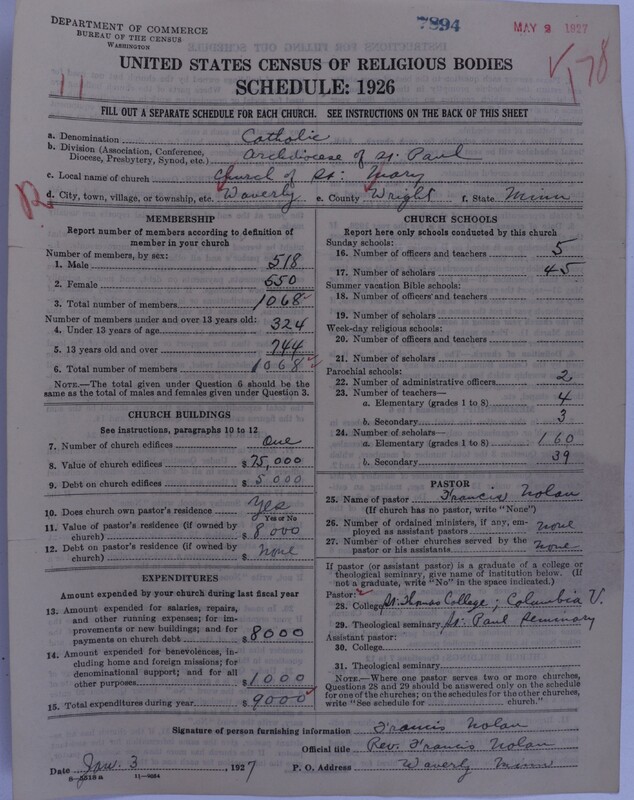 DEPARTMENT OF COMMERCE
BUREAU OF THE CENSUS
WASHINGTON
7894
MAY 2 1927
UNITED STATES CENSUS OF RELIGIOUS BODIES
SCHEDULE: 1926
11
178
FILL OUT A SEPARATE SCHEDULE FOR EACH CHURCH. SEE INSTRUCTIONS ON THE BACK OF THIS SHEET
a. Denomination Catholic
b. Division (Association, Conference, Diocese, Presbytery, Synod, etc.) Archdiocese of St. Paul
c. Local name of church Church of St: Mary
d. City, town, village, or township, etc. Waverly e. County Wright f. State Minn
MEMBERSHIP
Report number of members according to definition of member in your church
Number of members, by sex:
1. Male 518
2. Female 550
3. Total number of members 1068
Number of members under and over 13 years old:
4. Under 13 years of age 324
5. 13 years old and over 744
6. Total number of members 1068
NOTE.—The total given under Question 6 should be the same as the total of males and females given under Question 3.
CHURCH BUILDINGS
See instructions, paragraphs 10 to 12
7. Number of church edifices One
8. Value of church edifices $75,000
9. Debt on church edifices $5000
10. Does church own pastor's residence Yes
Yes or No
11. Value of pastor's residence (if owned by church) $8000
12. Debt on pastor's residence (if owned by church) $none
EXPENDITURES
Amount expended by your church during last fiscal year
13. Amount expended for salaries, repairs, and other running expenses; for improvements or new buildings; and for payments on church debt $8000
14. Amount expended for benevolences, including home and foreign missions; for denominational support; and for all other purposes $1000
15. Total expenditures during year $9000
CHURCH SCHOOLS
Report here only schools conducted by this church
Sunday schools:
16. Number of officers and teachers 5
17. Number of scholars 45
Summer vacation Bible schools:
18. Number of officers and teachers
19. Number of scholars
Week-day religious schools:
20. Number of officers and teachers
21. Number of scholars
Parochial schools:
22. Number of administrative officers 2
23. Number of teachers—
a. Elementary (grades 1 to 8) 4
b. Secondary 3
24. Number of scholars—
a. Elementary (grades 1 to 8) 160
b. Secondary 39
PASTOR
25. Name of pastor Francis Nolan
(If church has no pastor, write "None")
26. Number of ordained ministers, if any, employed as assistant pastors none
27. Number of other churches served by the pastor or his assistants none
If pastor (or assistant pastor) is a graduate of a college or theological seminary, give name of institution below. (If not a graduate, write "No" in the space indicated.)
Pastor:
28. College St. Thomas College; Columbia U.
29. Theological seminary St. Paul Seminary
Assistant pastor:
30. College
31. Theological seminary
NOTE.—Where one pastor serves two or more churches, Questions 28 and 29 should be answered only on the schedule for one of the churches; on the schedules for the other churches, write "See schedule for church."
Signature of person furnishing information Francis Nolan
Official title Rev. Francis Nolan
Date Jan. 3, 1927 P. O. Address Waverly Minn
8—5518a 11—9894